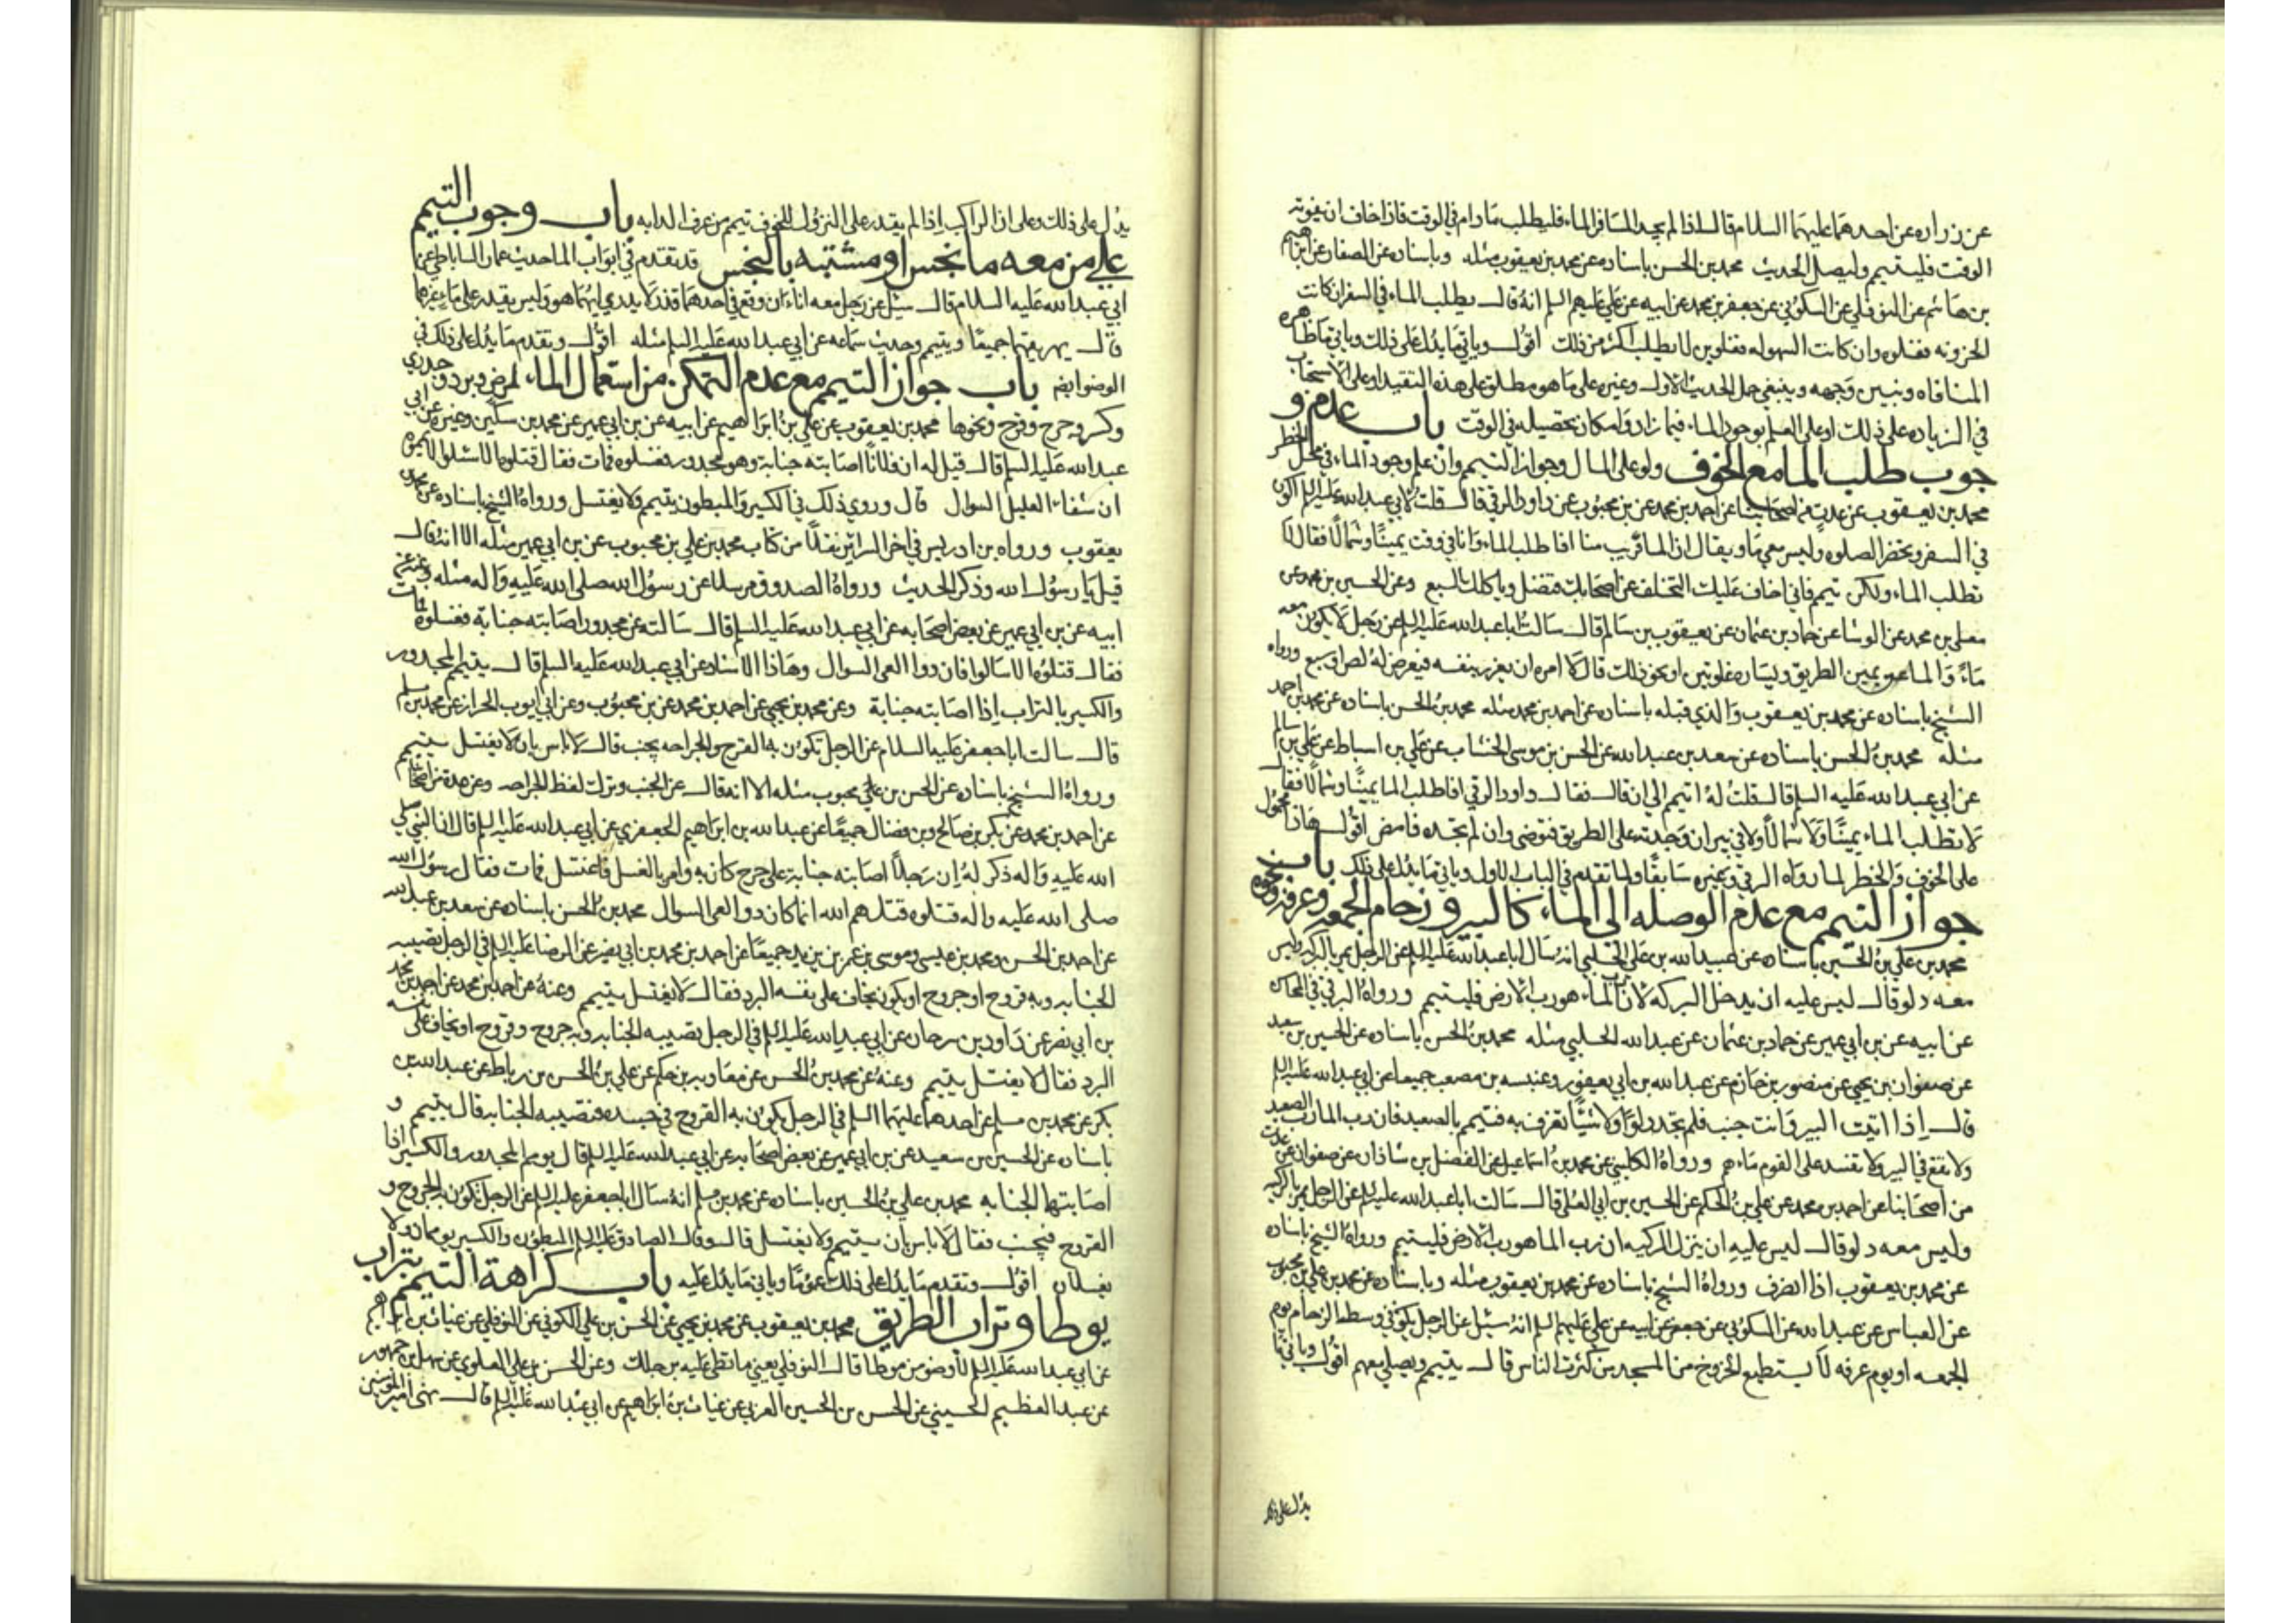 عن زراره عن احدهما عليهما السلام قال اذا لم يجد المسافر الماء فليطلب مادام في الوقت فاذا خاف ان يفوته
الوقت فليتيمم وليصل الحديث محمد بن الحسن باسناده عن محمد بن يعقوب مثله وباسناده عن الصفار عن ابراهيم
بن هاشم عن النوفلي عن السكوني عن جعفر بن محمد عن ابيه عن علي عليهم السلم انه قال يطلب الماء في السفر ان كانت
الحزونه فغلوه وان كانت السهوله فغلوتين لا يطلب اكثر من ذلك اقول وياتي ما يدل على ذلك وياتي ما ظاهره
المنافاه ونبين وجهه وينبغي حمل الحديث الاول وغيره على ما هو مطلق على هذه التقييد او على الاستحباب
في الزياده على ذلك او على العلم بوجود الماء فيما زاد وامكان تحصيله في الوقت باب عدم و
جوب طلب الما مع الخوف ولو على المال وجواز التيمم وان علم وجود الماء في محل الخطر
محمد بن يعقوب عن عدة من اصحابنا عن احمد بن محمد عن بن محبوب عن داود الرقي قال قلت لابي عبد الله عليه السلم اكون
في السفر وتحضر الصلوه وليس معي ما ويقال ان الما قريب منا افاطلب الماء وانا في وقت يمينًا وشمالًا فقال لا
تطلب الماء ولكن تيمم فاني اخاف عليك التخلف عن اصحابك فتضل وياكلك السبع وعن الحسين بن محمد عن
معلى بن محمد عن الوشا عن حماد بن عثمان عن يعقوب بن سالم قال سالت ابا عبد الله عليه السلم عن رجل لا يكون معه
ماء والما عن يمين الطريق ويساره غلوتين او نحو ذلك قال لا امره ان يغرر بنفسه فيعرض له لص او سبع ورواه
الشيخ باسناده عن محمد بن يعقوب والذي قبله باسناده عن احمد بن محمد مثله محمد بن الحسن باسناده عن محمد بن احمد
مثله محمد بن الحسن باسناده عن سعد بن عبد الله عن الحسن بن موسى الخشاب عن علي بن اسباط عن علي بن سالم
عن ابي عبد الله عليه السلم قال قلت له اتيمم الى ان قال فقال داود الرقي افاطلب الما يمينًا وشمالًا فقال
لا تطلب الماء يمينًا ولا شمالًا ولا في بير ان وجدته على الطريق فتوضى وان لم تجده فامض اقول هاذا محمول
على الخوف والخطر لما رواه الرقي وغيره سابقًا ولما تقدم في الباب الاول وياتي ما يدل على ذلك باب
جواز التيمم مع عدم الوصله الى الماء كالبير و زحام الجمعه وعرفه ونحوه
محمد بن علي بن الحسين باسناده عن عبيد الله بن علي الحلبي انه سال ابا عبد الله عليه السلم عن الرجل يمر بالركيه وليس
معه دلو قال ليس عليه ان يدخل البركه لان رب الماء هو رب الارض فليتيمم ورواه البرقي في المحاسن
عن ابيه عن بن ابي عمير عن حماد بن عثمان عن عبد الله الحلبي مثله محمد بن الحسن باسناده عن الحسين بن سعيد
عن صفوان بن يحيى عن منصور بن حازم عن عبد الله بن ابي يعفور وعنبسه بن مصعب جميعا عن ابي عبد الله عليه السلم
قال اذا اتيت البير وانت جنب فلم تجد دلوًا ولا شيئًا تغرف به فتيمم بالصعيد فان رب الما رب الصعيد
ولا تقع في البير ولا تفسد على القوم ماءهم ورواه الكليني عن محمد بن اسماعيل عن الفضل بن شاذان عن صفوان عن عدة
من اصحابنا عن احمد بن محمد عن علي بن الحكم عن الحسين بن ابي العلا قال سالت ابا عبد الله عليه السلم عن الرجل يمر بالركيه
وليس معه دلو قال ليس عليه ان ينزل الركيه ان رب الما هو رب الارض فليتيمم ورواه الشيخ باسناده
عن محمد بن يعقوب اذا انصرف ورواه الشيخ باسناده عن محمد بن يعقوب مثله وباسناده عن محمد بن علي بن محبوب
عن العباس عن عبد الله عن السكوني عن جعفر عن ابيه عن علي عليهم السلم انه سئل عن الرجل يكون في وسط الزحام يوم
الجمعه او يوم عرفه لا يستطيع الخروج من المسجد من كثرت الناس قال يتيمم ويصلي معهم اقول وياتي ما
يدل على ذلك
يدل على ذلك وعلى ان الراكب اذا لم يقدر على النزول للخوف تيمم من عرف الدابه باب وجوب التيمم
على من معه ما نجس او مشتبه بالنجس قد تقدم في ابواب الما حديث عمار الساباطي عن
ابي عبد الله عليه السلام قال سئل عن رجل معه اناءان وقع في احدهما قذر لا يدري ايهما هو وليس يقدر على ماء غيرهما
قال يهريقهما جميعًا ويتيمم وحديث سماعه عن ابي عبد الله عليه السلم مثله اقول وتقدم ما يدل على ذلك في
الوضو ايضا باب جواز التيمم مع عدم التمكن من استعمال الماء لمرض وبرد وجدري
وكسر وجرح وقرح ونحوها محمد بن يعقوب عن علي بن ابراهيم عن ابيه عن بن ابي عمير عن محمد بن سكين وغيره عن ابي
عبد الله عليه السلم قال قيل له ان فلانًا اصابته جنابة وهو مجدور فغسلوه فمات فقال قتلوه الا سئلوا الا يمموه
ان شفاء العليل السوال قال وروي ذلك في الكسير والمبطون يتيمم ولا يغتسل ورواه الشيخ باسناده عن محمد بن
يعقوب ورواه بن ادريس في اخر السرائر نقلًا من كتاب محمد بن علي بن محبوب عن بن ابي عمير مثله الا انه قال
قيل يا رسول الله وذكر الحديث ورواه الصدوق مرسلا عن رسول الله صلى الله عليه واله مثله وعنه عن
ابيه عن بن ابي عمير عن بعض اصحابه عن ابي عبد الله عليه السلم قال سالته عن مجدور اصابته جنابة فغسلوه فمات
فقال قتلوه الا سالوا فان دوا العي السوال وهاذا الاسناد عن ابي عبد الله عليه السلم قال يتيمم المجدور
والكسير بالتراب اذا اصابته جنابة وعن محمد بن يحيى عن احمد بن محمد عن بن محبوب وعن ابي ايوب الخراز عن محمد بن مسلم
قال سالت ابا جعفر عليه السلام عن الرجل تكون به القرح والجراحه يجنب قال لا باس بان لا يغتسل يتيمم
ورواه الشيخ باسناده عن الحسن بن علي محبوب مثله الا انه قال عن الجنب وترك لفظ الجراحه وعن عدة من اصحابنا
عن احمد بن محمد عن بكر بن صالح وبن فضال جميعًا عن عبد الله بن ابراهيم الجعفري عن ابي عبد الله عليه السلم قال ان النبي صلى
الله عليه واله ذكر له ان رجلًا اصابته جنابة على جرح كان به وامر بالغسل فاغتسل فمات فقال رسول الله
صلى الله عليه واله قتلوه قتلهم الله انما كان دوا العي السوال محمد بن الحسن باسناده عن سعد بن عبد الله
عن احمد بن الحسن ومحمد بن عيسى وموسى بن عمر بن يزيد جميعًا عن احمد بن محمد بن ابي نصر عن الرضا عليه السلم في الرجل تصيبه
الجنابه وبه قروح او جروح او يكون يخاف على نفسه البرد فقال لا يغتسل يتيمم وعنه عن احمد بن محمد عن احمد بن محمد
بن ابي نصر عن داود بن سرحان عن ابي عبد الله عليه السلم في الرجل تصيبه الجنابه وبه جروح وقروح او يخاف على نفسه
البرد فقال لا يغتسل يتيمم وعنه عن محمد بن الحسن عن معاويه بن حكيم عن علي بن الحسن بن رباط عن عبد الله بن
بكر عن محمد بن مسلم عن احدهما عليهما السلم في الرجل يكون به القروح في جسده فتصيبه الجنابه قال يتيمم و
باسناده عن الحسين بن سعيد عن بن ابي عمير عن بعض اصحابه عن ابي عبد الله عليه السلم قال يومم المجدور والكسير اذا
اصابتهما الجنابه محمد بن علي بن الحسين باسناده عن محمد بن مسلم انه سال ابا جعفر عليه السلم عن الرجل تكون به الجروح و
القروح فيجنب فقال لا باس بان يتيمم ولا يغتسل قال وقال الصادق عليه السلم المبطون والكسير يوممان ولا
يغسلان اقول وتقدم ما يدل على ذلك عمومًا وياتي ما يدل عليه باب كراهة التيمم بتراب
يوطا وتراب الطريق محمد بن يعقوب عن محمد بن يحيى عن الحسن بن علي الكوفي عن النوفلي عن غياث بن ابراهيم
عن ابي عبد الله عليه السلم لا وضو من موطا قال النوفلي يعني ما تطا عليه برجلك وعن الحسن بن علي العلوي عن سهل بن جمهور
عن عبد العظيم الحسيني عن الحسن بن الحسين العرني عن غياث بن ابراهيم عن ابي عبد الله عليه السلم قال نهى امير المومنين